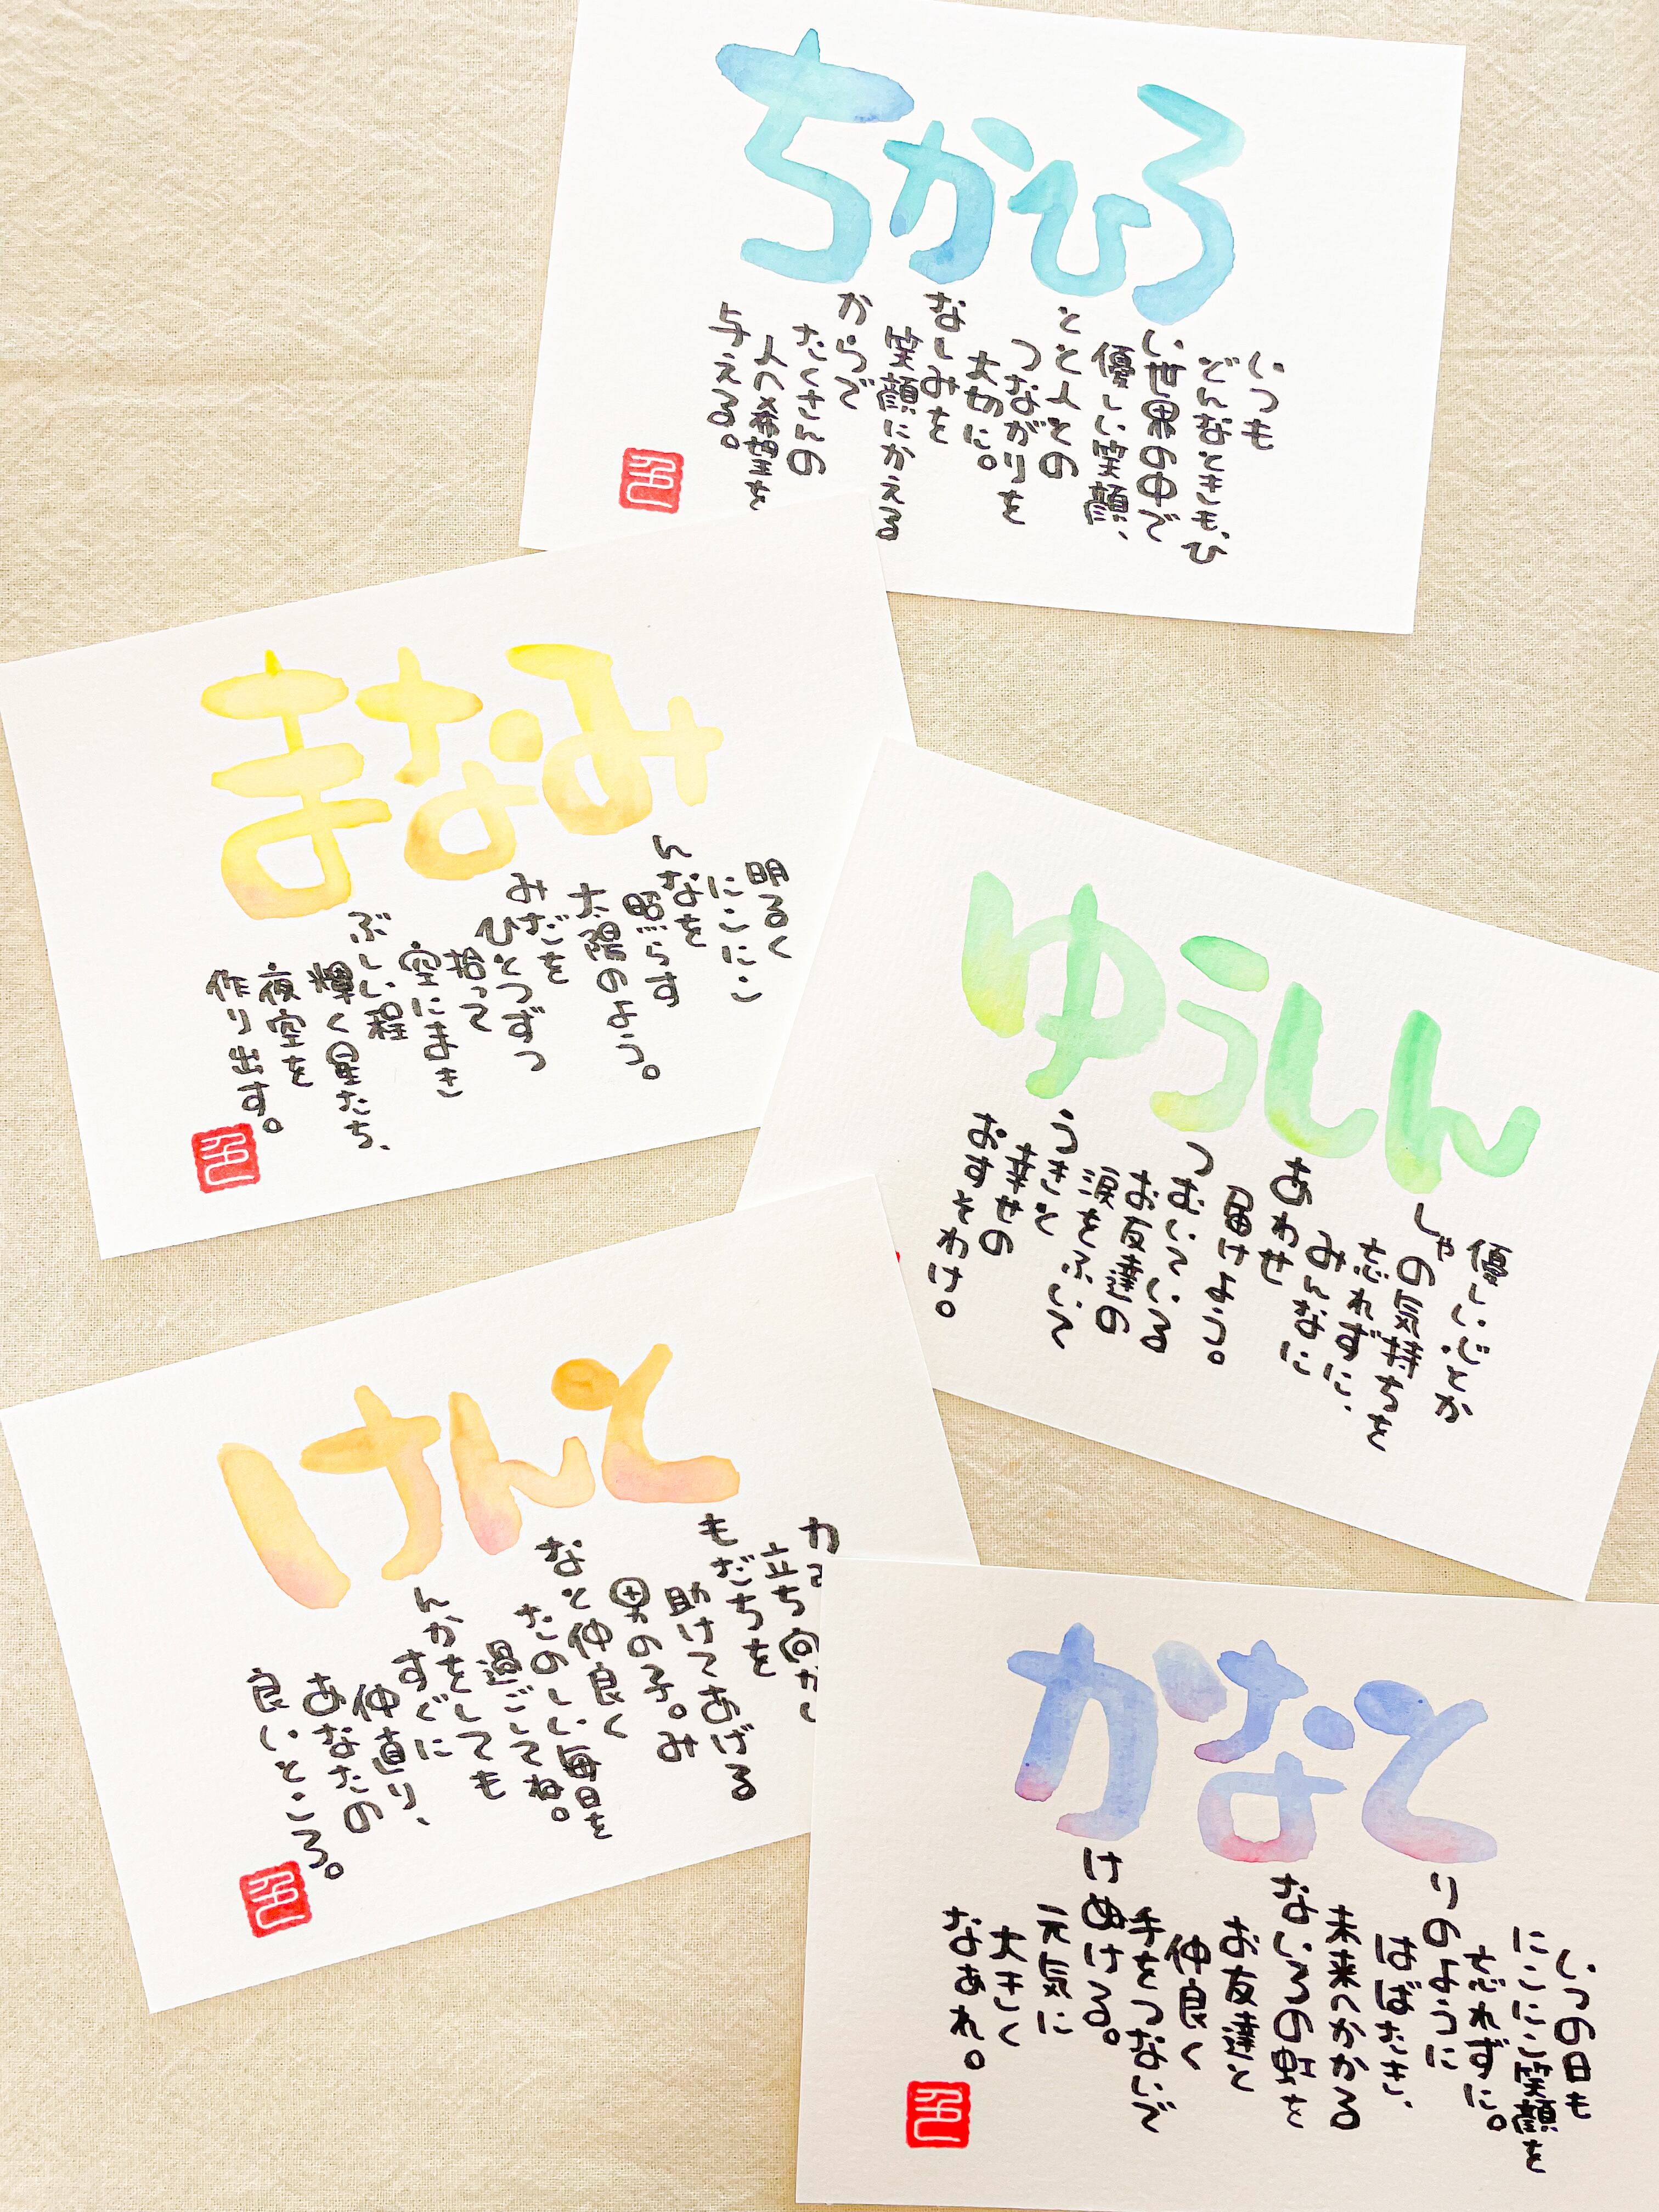 ちかひろ
いつも
どんなときも、ひ
い世界の中で
優しい笑顔、
とと人との
つながりを
大切に。
なしみを
笑顔にかえる
からで
たくさんの
人へ希望を
与える。
まなみ
明るく
にこにこ
んなを
照らす
太陽のよう。
みだを
ひとつずつ
拾って
空にまき
ぶしい程
輝く星たち、
夜空を
作り出す。
ゆうしん
優しい心とか
しゃの気持ちを
忘れずに、
みんなに
あわせ
届けよう。
つむいている
お友達の
涙をふいて
うきと
幸せの
おすそわけ。
けんと
立ち向かい
もだちを
助けてあげる
男の子。み
なと仲良く
たのしい毎日を
過ごしてね。
んかをしても
すぐに
仲直り、
あなたの
良いところ。
かなと
いつの日も
にこにこ笑顔を
忘れずに。
りのように
はばたき、
未来へかかる
ないろの虹を
お友達と
仲良く
手をつないで
けぬける。
元気に
大きく
なあれ。